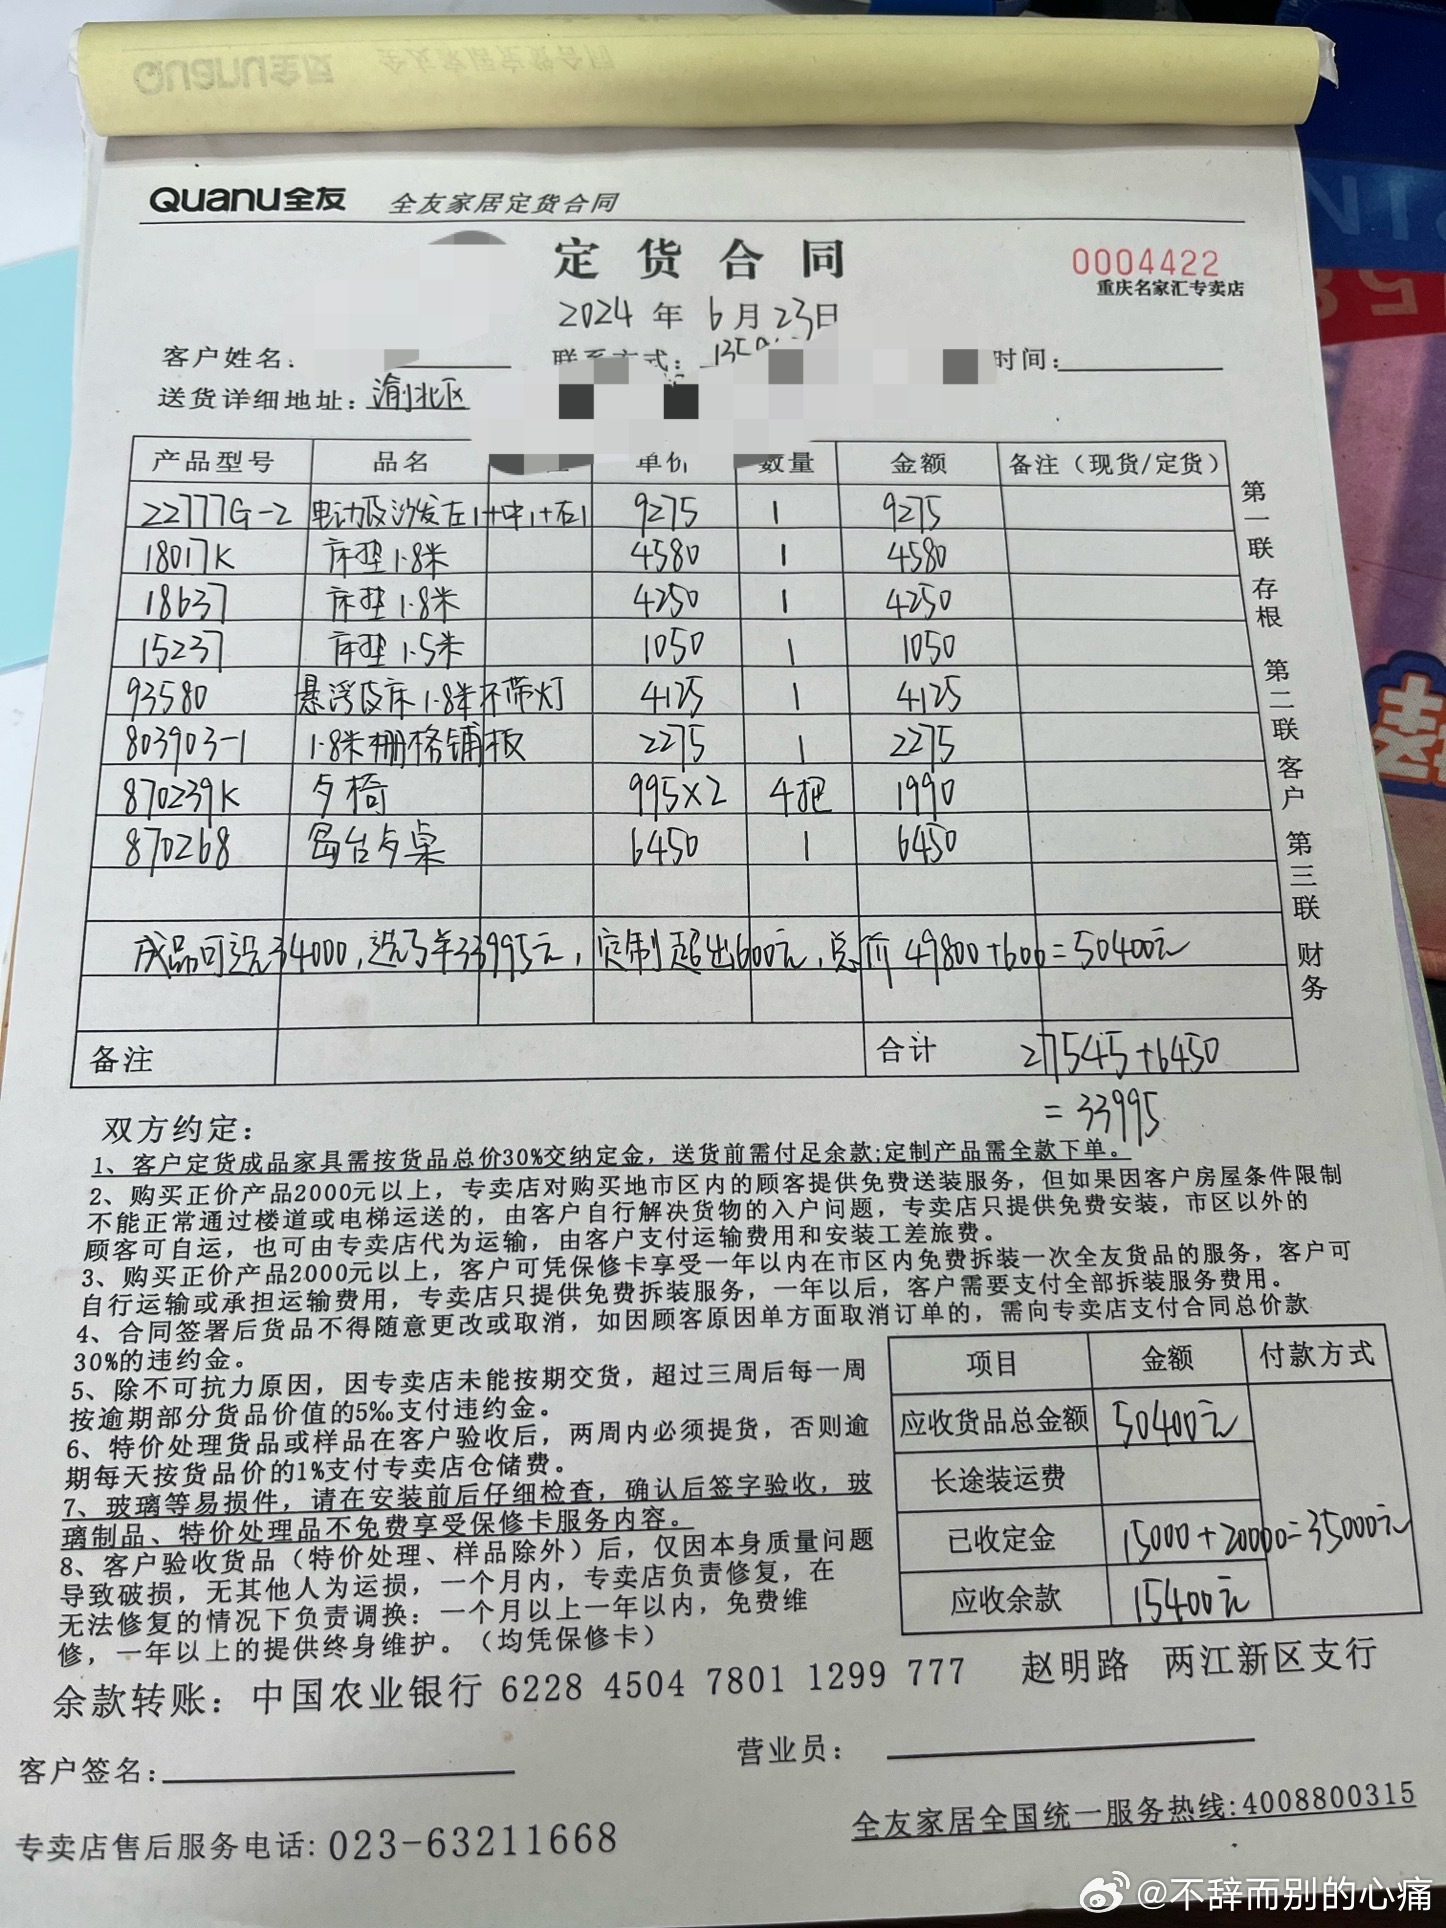 Quanu全友 全友家居定货合同
定货合同
0004422
重庆名家汇专卖店
2024年6月23日
客户姓名: 联系方式: 时间:
送货详细地址: 渝北区
产品型号 品名 单价 数量 金额 备注(现货/定货)
22777G-2 电动皮沙发左1+中1+右1 9275 1 9275
18017K 床垫1.8米 4580 1 4580
18637 床垫1.8米 4250 1 4250
15237 床垫1.5米 1050 1 1050
93580 悬浮皮床1.8米不带灯 4125 1 4125
803903-1 1.8米栅格铺板 2275 1 2275
870239K 歺椅 995×2 4把 1990
870268 岛台歺桌 6450 1 6450
成品可选34000,选了羊33995元,定制超出600元,总价49800+600=50400元
备注 合计 27545+6450
=33995
第一联 存根 第二联 客户 第三联 财务
双方约定:
1、客户定货成品家具需按货品总价30%交纳定金,送货前需付足余款;定制产品需全款下单。
2、购买正价产品2000元以上,专卖店对购买地市区内的顾客提供免费送装服务,但如果因客户房屋条件限制
不能正常通过楼道或电梯运送的,由客户自行解决货物的入户问题,专卖店只提供免费安装,市区以外的
顾客可自运,也可由专卖店代为运输,由客户支付运输费用和安装工差旅费。
3、购买正价产品2000元以上,客户可凭保修卡享受一年以内在市区内免费拆装一次全友货品的服务,客户可
自行运输或承担运输费用,专卖店只提供免费拆装服务,一年以后,客户需要支付全部拆装服务费用。
4、合同签署后货品不得随意更改或取消,如因顾客原因单方面取消订单的,需向专卖店支付合同总价款
30%的违约金。
5、除不可抗力原因,因专卖店未能按期交货,超过三周后每一周
按逾期部分货品价值的5‰支付违约金。
6、特价处理货品或样品在客户验收后,两周内必须提货,否则逾
期每天按货品价的1%支付专卖店仓储费。
7、玻璃等易损件,请在安装前后仔细检查,确认后签字验收,玻
璃制品、特价处理品不免费享受保修卡服务内容。
8、客户验收货品(特价处理、样品除外)后,仅因本身质量问题
导致破损,无其他人为运损,一个月内,专卖店负责修复,在
无法修复的情况下负责调换;一个月以上一年以内,免费维
修,一年以上的提供终身维护。(均凭保修卡)
项目 金额 付款方式
应收货品总金额 50400元
长途装运费
已收定金 15000+20000=35000元
应收余款 15400元
余款转账:中国农业银行 6228 4504 7801 1299 777 赵明路 两江新区支行
客户签名: 营业员:
专卖店售后服务电话: 023-63211668 全友家居全国统一服务热线:4008800315
@不辞而别的心痛